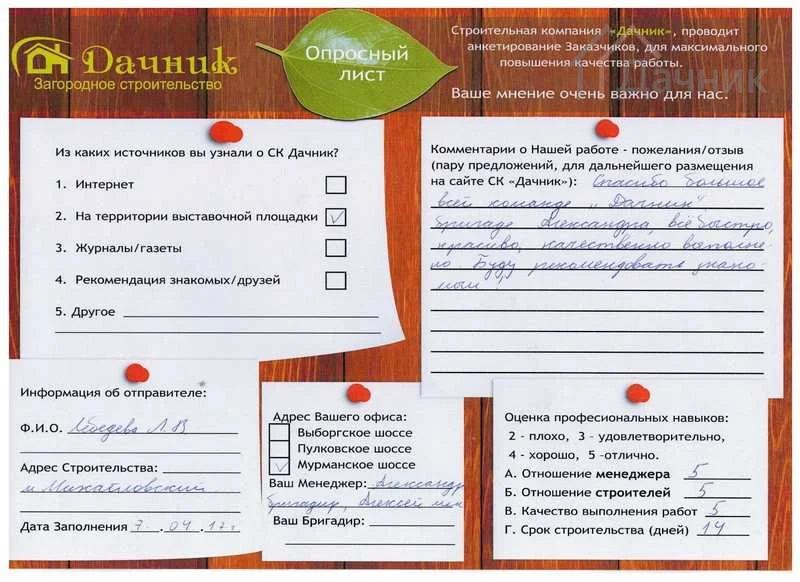 Дачник
Загородное строительство
Опросный
лист
Строительная компания «Дачник», проводит
анкетирование Заказчиков, для максимального
повышения качества работы.
Ваше мнение очень важно для нас.
Дачник
Из каких источников вы узнали о СК Дачник?
1. Интернет
2. На территории выставочной площадки
3. Журналы/газеты
4. Рекомендация знакомых/друзей
5. Другое
Комментарии о Нашей работе - пожелания/отзыв
(пару предложений, для дальнейшего размещения
на сайте СК «Дачник»): Спасибо большое
всей команде „Дачник"
бригаде Александра, всё быстро,
красиво, качественно выполне-
но. Буду рекомендовать знако-
мым!
Информация об отправителе:
Ф.И.О. Лебедева Л.В
Адрес Строительства:
п Михайловский
Дата Заполнения 7.04.17г
Адрес Вашего офиса:
Выборгское шоссе
Пулковское шоссе
Мурманское шоссе
Ваш Менеджер: Александр
бригадир, Алексей мен
Ваш Бригадир:
Оценка професиональных навыков:
2 - плохо, 3 - удовлетворительно,
4 - хорошо, 5 -отлично.
А. Отношение менеджера 5
Б. Отношение строителей 5
В. Качество выполнения работ 5
Г. Срок строительства (дней) 14